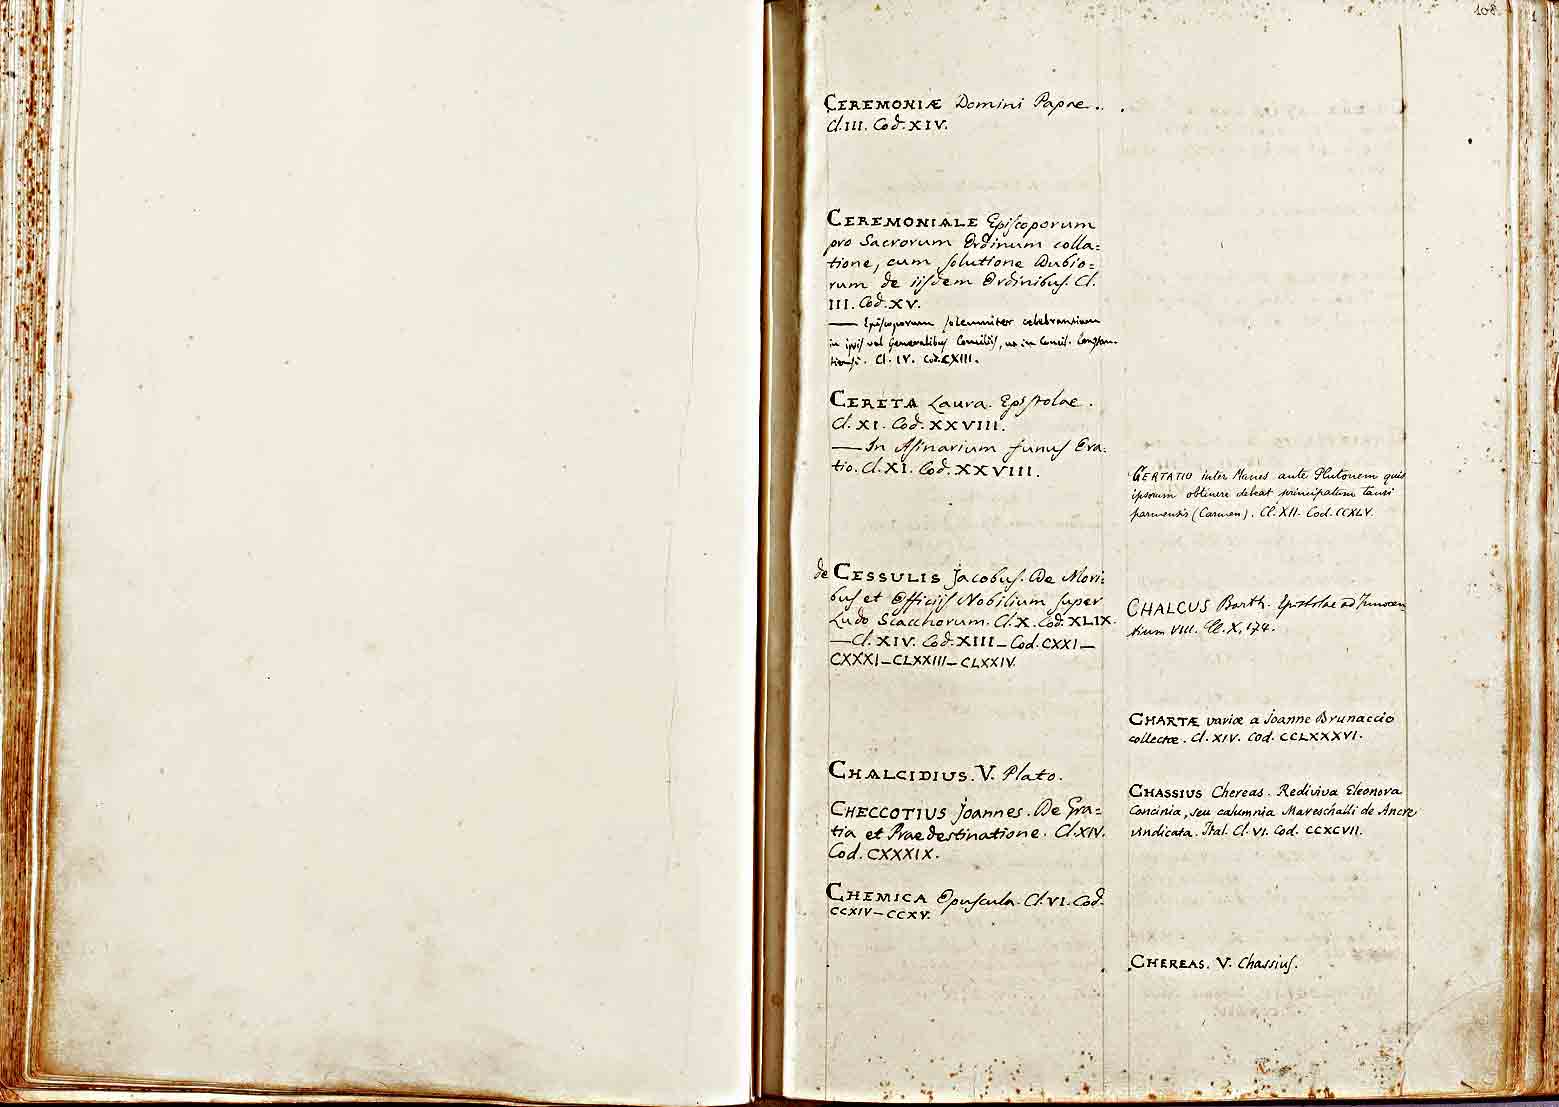 108.
1
CEREMONIÆ Domini Papae . . .
Cl. III. Cod. XIV.
CEREMONIALE Episcoporum
pro Sacrorum Ordinum colla=
tione, cum solutione Dubio=
rum de iisdem Ordinibus. Cl.
III. Cod. XV.
— Episcoporum solemniter celebrantium
in ipsis vel Generalibus Conciliis, ut in Concil. Constan-
tiensi. Cl. IV. Cod. CXIII.
CERETA Laura. Epistolae.
Cl. XI. Cod. XXVIII.
— In Asinarium funus Ora=
tio. Cl. XI. Cod. XXVIII.
de CESSULIS Jacobus. De Mori=
bus et Officiis Nobilium super
Ludo Scacchorum. Cl. X. Cod. XLIX.
— Cl. XIV. Cod. XIII — Cod. CXXI —
CXXXI — CLXXIII — CLXXIV.
CHALCIDIUS. V. Plato.
CHECCOTIUS Joannes. De Gra=
tia et Praedestinatione. Cl. XIV.
Cod. CXXXIX.
CHEMICA Opuscula. Cl. VI. Cod.
CCXIV — CCXV.
CERTATIO inter Manes ante Plutonem quis
ipsorum obtinere debeat principatum
parmensis (Carmen). Cl. XII. Cod. CCXLV.
CHALCUS Barth. Epistolae ad Innocen
tium VIII. Cl. X, 174.
CHARTÆ variæ a Joanne Brunaccio
collectæ. Cl. XIV. Cod. CCLXXXVI.
CHASSIUS Chereas. Rediviva Eleonora
Concinia, seu calumnia Mareschalli de Ancre
vindicata. Ital. Cl. VI. Cod. CCXCVII.
CHEREAS. V. Chassius.